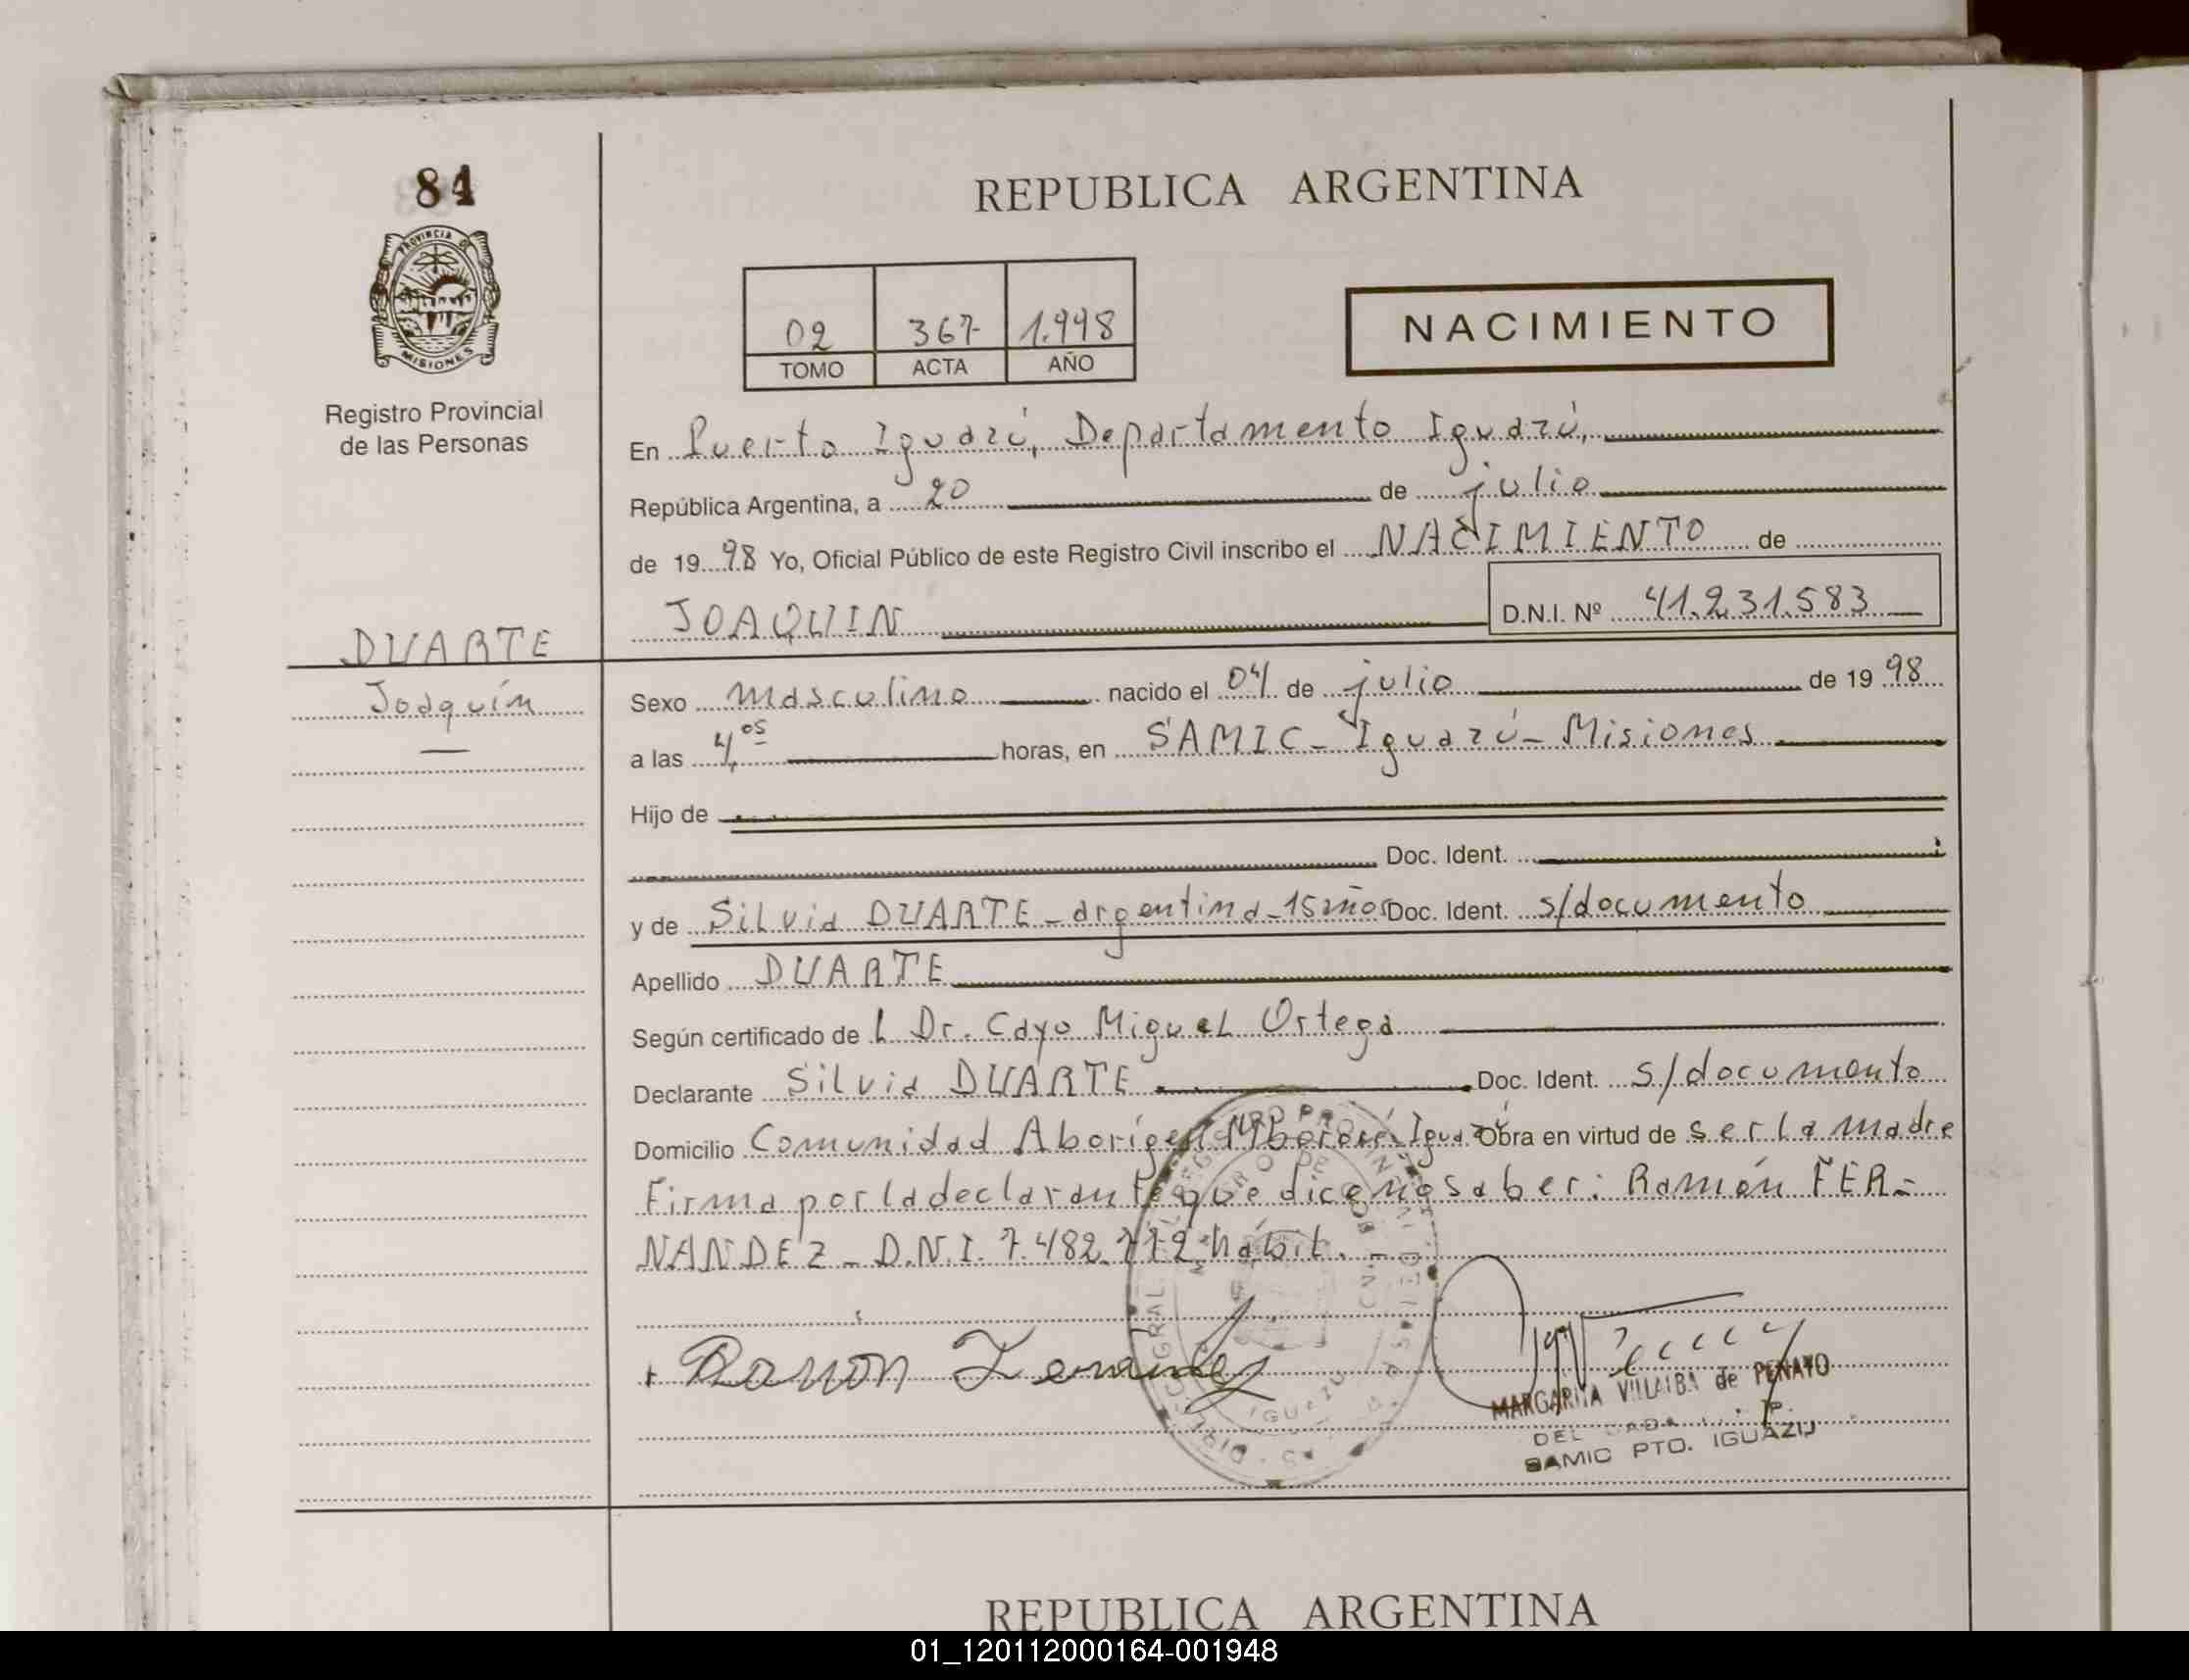 84
PROVINCIA DE
MISIONES
Registro Provincial
de las Personas
REPUBLICA ARGENTINA
02 367 1.998
TOMO ACTA AÑO
NACIMIENTO
En Puerto Iguazú, Departamento Iguazú,
República Argentina, a 20 de julio
de 19 98 Yo, Oficial Público de este Registro Civil inscribo el NACIMIENTO de
JOAQUIN D.N.I. Nº 41.231.583
DUARTE
Joaquín
Sexo masculino nacido el 04 de julio de 19 98
a las 4,05 horas, en SAMIC - Iguazú - Misiones
Hijo de
Doc. Ident.
y de Silvia DUARTE - argentina - 15 años Doc. Ident. s/documento
Apellido DUARTE
Según certificado de l Dr. Cayo Miguel Ortega
Declarante Silvia DUARTE Doc. Ident. s/documento
Domicilio Comunidad Aborigen Mbororé, Iguazú Obra en virtud de ser la madre
Firma por la declarante que dice no saber: Ramón FER-
NANDEZ - D.N.I. 7.482.772 hábil.
Ramón Fernández
MARGARITA VILLALBA de PENAYO
SAMIC PTO. IGUAZU
REPUBLICA ARGENTINA
01_120112000164-001948